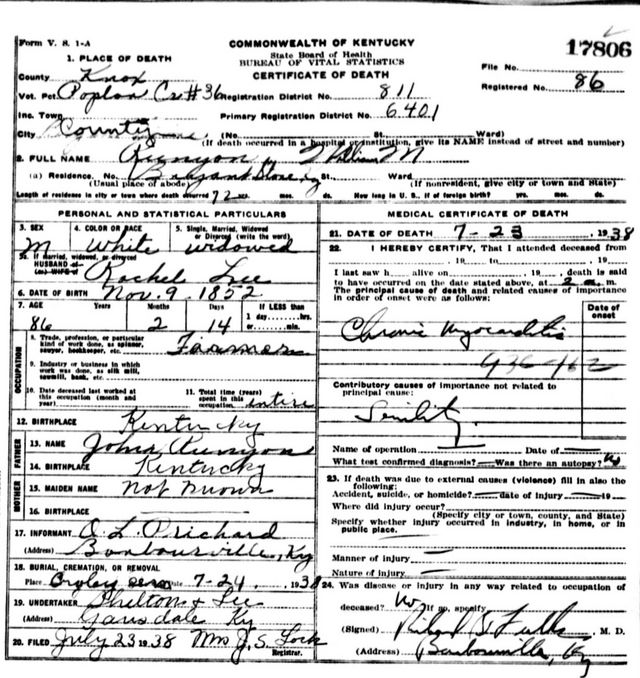 Form V. S. 1-A
COMMONWEALTH OF KENTUCKY
State Board of Health
BUREAU OF VITAL STATISTICS
CERTIFICATE OF DEATH
File No. 17806
Registered No. 86
1. PLACE OF DEATH
County Knox
Vot. Pct. Poplar Cr #36 Registration District No. 811
Inc. Town Primary Registration District No. 6401
City County (No. St. Ward)
(If death occurred in a hospital or institution, give its NAME instead of street and number)
2. FULL NAME Runyon, William M
(a) Residence. No. Bryant Store, Ky St. Ward
(Usual place of abode) (If nonresident, give city or town and State)
Length of residence in city or town where death occurred 72 yrs. mos. ds. How long in U. S., if of foreign birth? yrs. mos. ds.
PERSONAL AND STATISTICAL PARTICULARS
3. SEX M
4. COLOR OR RACE White
5. Single, Married, Widowed or Divorced (write the word) widowed
5a. If married, widowed, or divorced
HUSBAND of
(or) WIFE of Rachel Lee
6. DATE OF BIRTH Nov. 9. 1852
7. AGE 86 Years 2 Months 14 Days If LESS than 1 day hrs. or min.
8. Trade, profession, or particular kind of work done, as spinner, sawyer, bookkeeper, etc. Farmer
9. Industry or business in which work was done, as silk mill, sawmill, bank, etc.
10. Date deceased last worked at this occupation (month and year)
11. Total time (years) spent in this occupation entire
OCCUPATION
12. BIRTHPLACE Kentucky
FATHER
13. NAME John Runyon
14. BIRTHPLACE Kentucky
MOTHER
15. MAIDEN NAME Not Known
16. BIRTHPLACE
17. INFORMANT O. L. Prichard
(Address) Barbourville, Ky
18. BURIAL, CREMATION, OR REMOVAL
Place Croley Cem Date 7-24, 1938
19. UNDERTAKER Shelton & Lee
(Address) Gausdale Ky
20. FILED July 23 1938 Mrs J. S. Lock
Registrar.
MEDICAL CERTIFICATE OF DEATH
21. DATE OF DEATH 7-23 1938
22. I HEREBY CERTIFY, That I attended deceased from
, 19 to , 19
I last saw h alive on , 19 death is said
to have occurred on the date stated above, at 2 a. m.
The principal cause of death and related causes of importance in order of onset were as follows:
Date of onset
Chronic Myocarditis
Contributory causes of importance not related to principal cause:
Senility
Name of operation Date of
What test confirmed diagnosis? Was there an autopsy? No
23. If death was due to external causes (violence) fill in also the following:
Accident, suicide, or homicide? date of injury 19
Where did injury occur?
(Specify city or town, county, and State)
Specify whether injury occurred in industry, in home, or in public place.
Manner of injury
Nature of injury
24. Was disease or injury in any way related to occupation of
deceased? No If so, specify
(Signed) M. D.
(Address) Barbourville, Ky